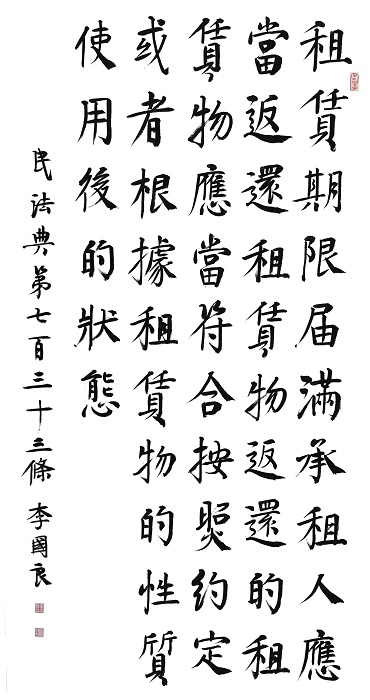 租賃期限届滿承租人應
當返還租賃物返還的租
賃物應當符合按照約定
或者根據租賃物的性質
使用後的狀態
民法典第七百三十三條 李國良